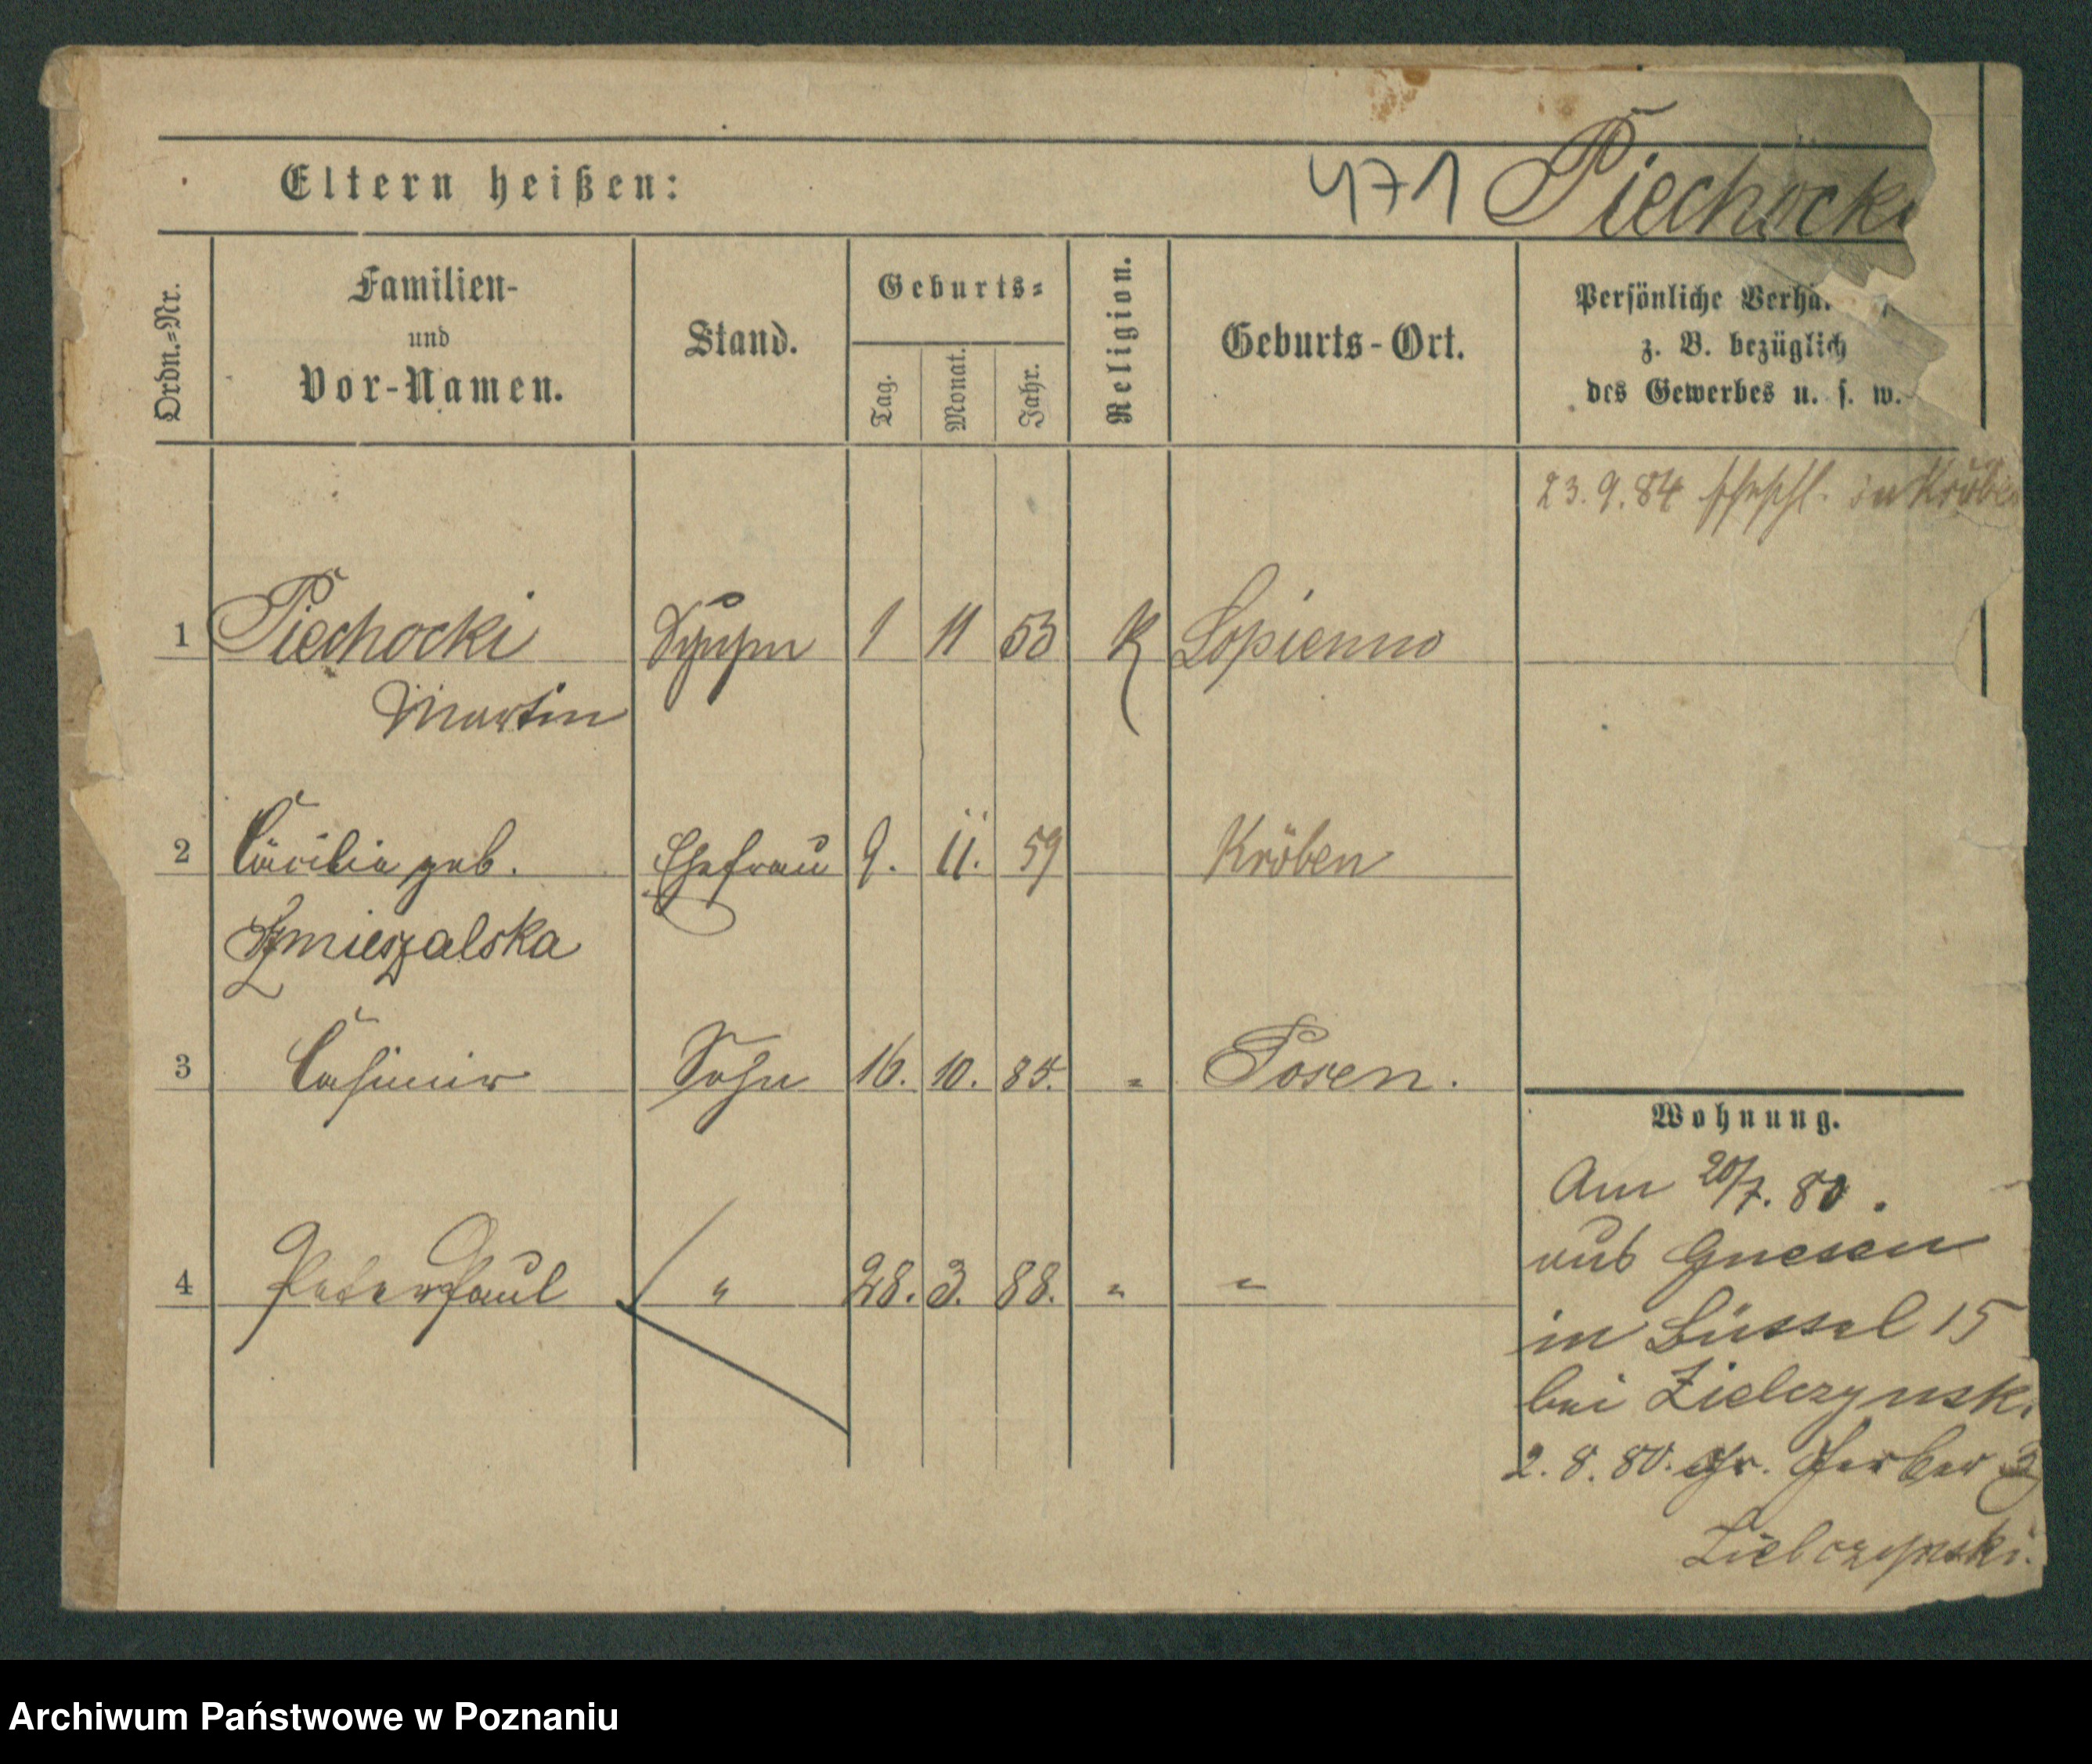 Eltern heißen:
471 Piechocki
Ordn.-Nr.
Familien-
und
Vor-Namen.
Stand.
Geburts-
Tag.
Monat.
Jahr.
Religion.
Geburts-Ort.
Persönliche
z. B. bezüglich
des Gewerbes u. s. w.
23.9.84 in Kröben
1 Piechocki 1 11 53 K Lopienno
Martin
2 Cäcilia geb. Ehefrau 9. 11. 59 Kröben
Zmieszalska
3 Casimir Sohn 16. 10. 85. " Posen.
4 Peter Paul " 28. 3. 88. " "
Wohnung.
Am 20/7. 80.
aus Gnesen
in Büssel 15
bei Zielczynski
2. 8. 80. Gr. Gerber 3
Zielczynski.
Archiwum Państwowe w Poznaniu